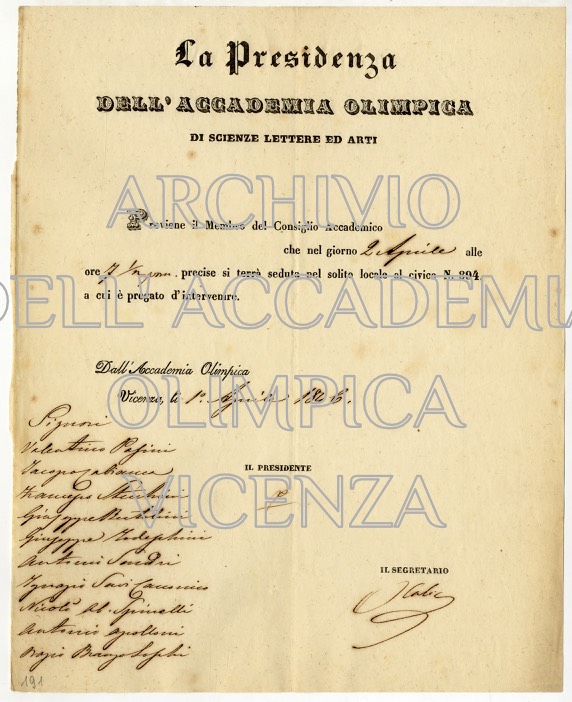 La Presidenza
DELL'ACCADEMIA OLIMPICA
DI SCIENZE LETTERE ED ARTI
ARCHIVIO
Previene il Membro del Consiglio Accademico
che nel giorno 2 Aprile alle
ore 7 ½ precise si terrà seduta nel solito locale al civico N. 894
DELL'ACCADEMIA
a cui è pregato d'intervenire.
Dall'Accademia Olimpica
OLIMPICA
Vicenza, li 1º Aprile 1846.
Signori
Valentino Pasini
Jacopo Cabianca
IL PRESIDENTE
Francesco
VICENZA
Giuseppe
Giuseppe Todeschini
Antonio Sandri
IL SEGRETARIO
Ignazio Savi Canonico
Nicolò Ab. Spinelli
Antonio Apolloni
191